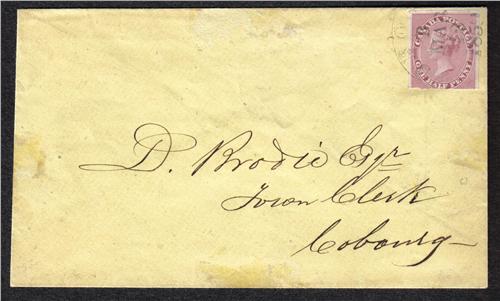 CANADA POSTAGE
ONE HALF PENNY
MA
1860
D. Brodie Esqr
Town Clerk
Cobourg